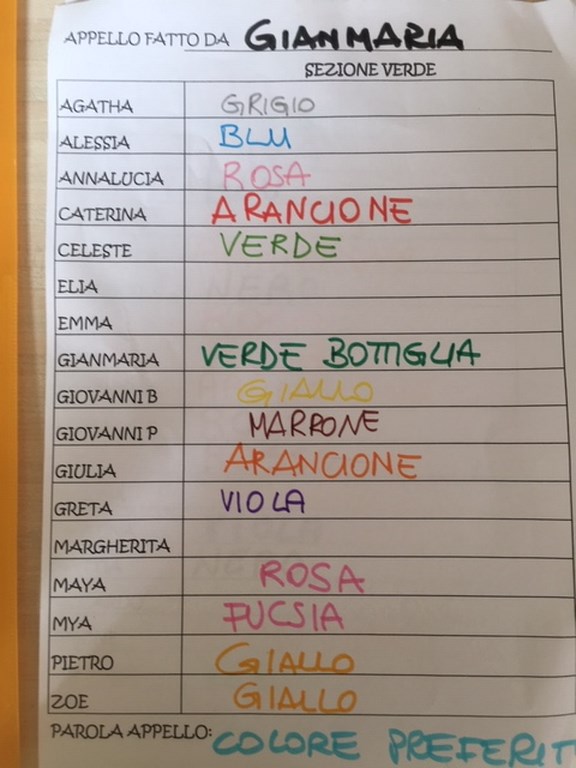 APPELLO FATTO DA GIANMARIA
SEZIONE VERDE
AGATHA GRIGIO
ALESSIA BLU
ANNALUCIA ROSA
CATERINA ARANCIONE
CELESTE VERDE
ELIA
EMMA
GIANMARIA VERDE BOTTIGLIA
GIOVANNI B GIALLO
GIOVANNI P MARRONE
GIULIA ARANCIONE
GRETA VIOLA
MARGHERITA
MAYA ROSA
MYA FUCSIA
PIETRO GIALLO
ZOE GIALLO
PAROLA APPELLO: COLORE PREFERIT